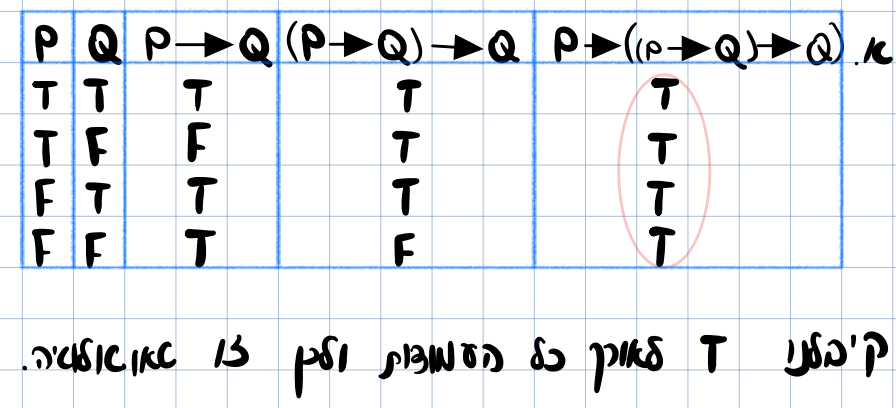 א. P Q P→Q (P→Q)→Q P→((P→Q)→Q)
T T T T T
T F F T T
F T T T T
F F T F T
קיבלנו T לאורך כל העמודות ולכן זו טאוטולוגיה.